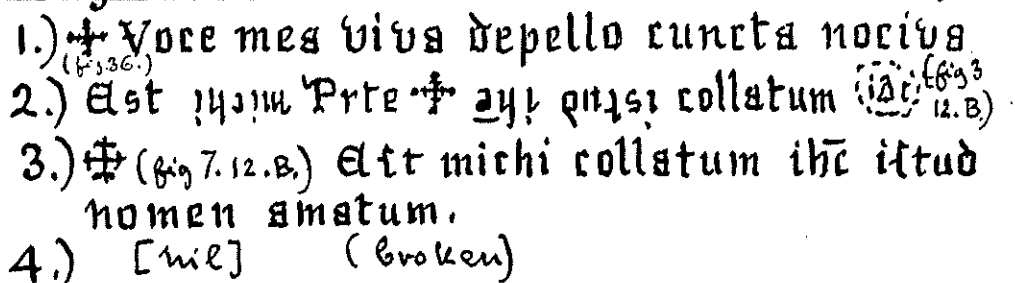 1.) ✠ Voce mea viva depello cuncta nociva
(fig 36.)
2.) Est michi Prte ✠ ihe istud collatum (fig 3
12. B.)
3.) ✠ (fig 7. 12. B.) Est michi collatum ihc̄ istud
nomen amatum.
4.) [nil] (broken)